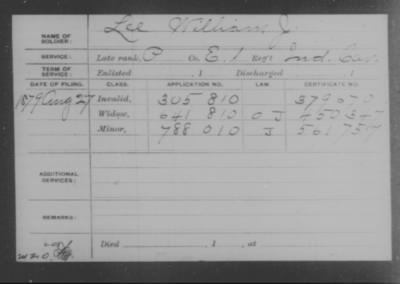 NAME OF SOLDIER: Lee William J.
SERVICE: Late rank, P Co. E, 1 Reg't Ind. Cav.
TERM OF SERVICE: Enlisted , 1 Discharged , 1
DATE OF FILING. CLASS. APPLICATION NO. LAW. CERTIFICATE NO.
1879 Aug 27 Invalid, 305 810 379 070
Widow, 641 810 O J
Minor, 788 010 J 561 757
ADDITIONAL SERVICES:
REMARKS:
Died , 1 , at